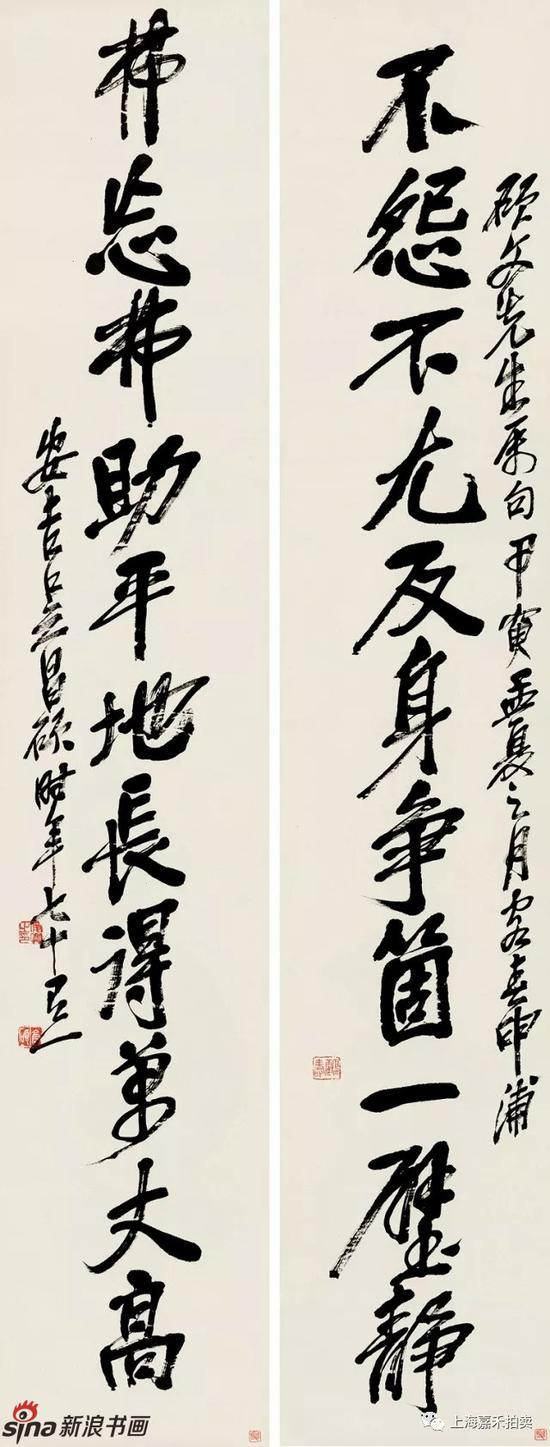 碩文先生属句甲寅孟夏之月客春申浦
不怨不尤反身争箇一壁静
弗忘弗助平地長得萬丈高
安吉吴昌碩時年七十有一
sina新浪书画
上海嘉禾拍卖